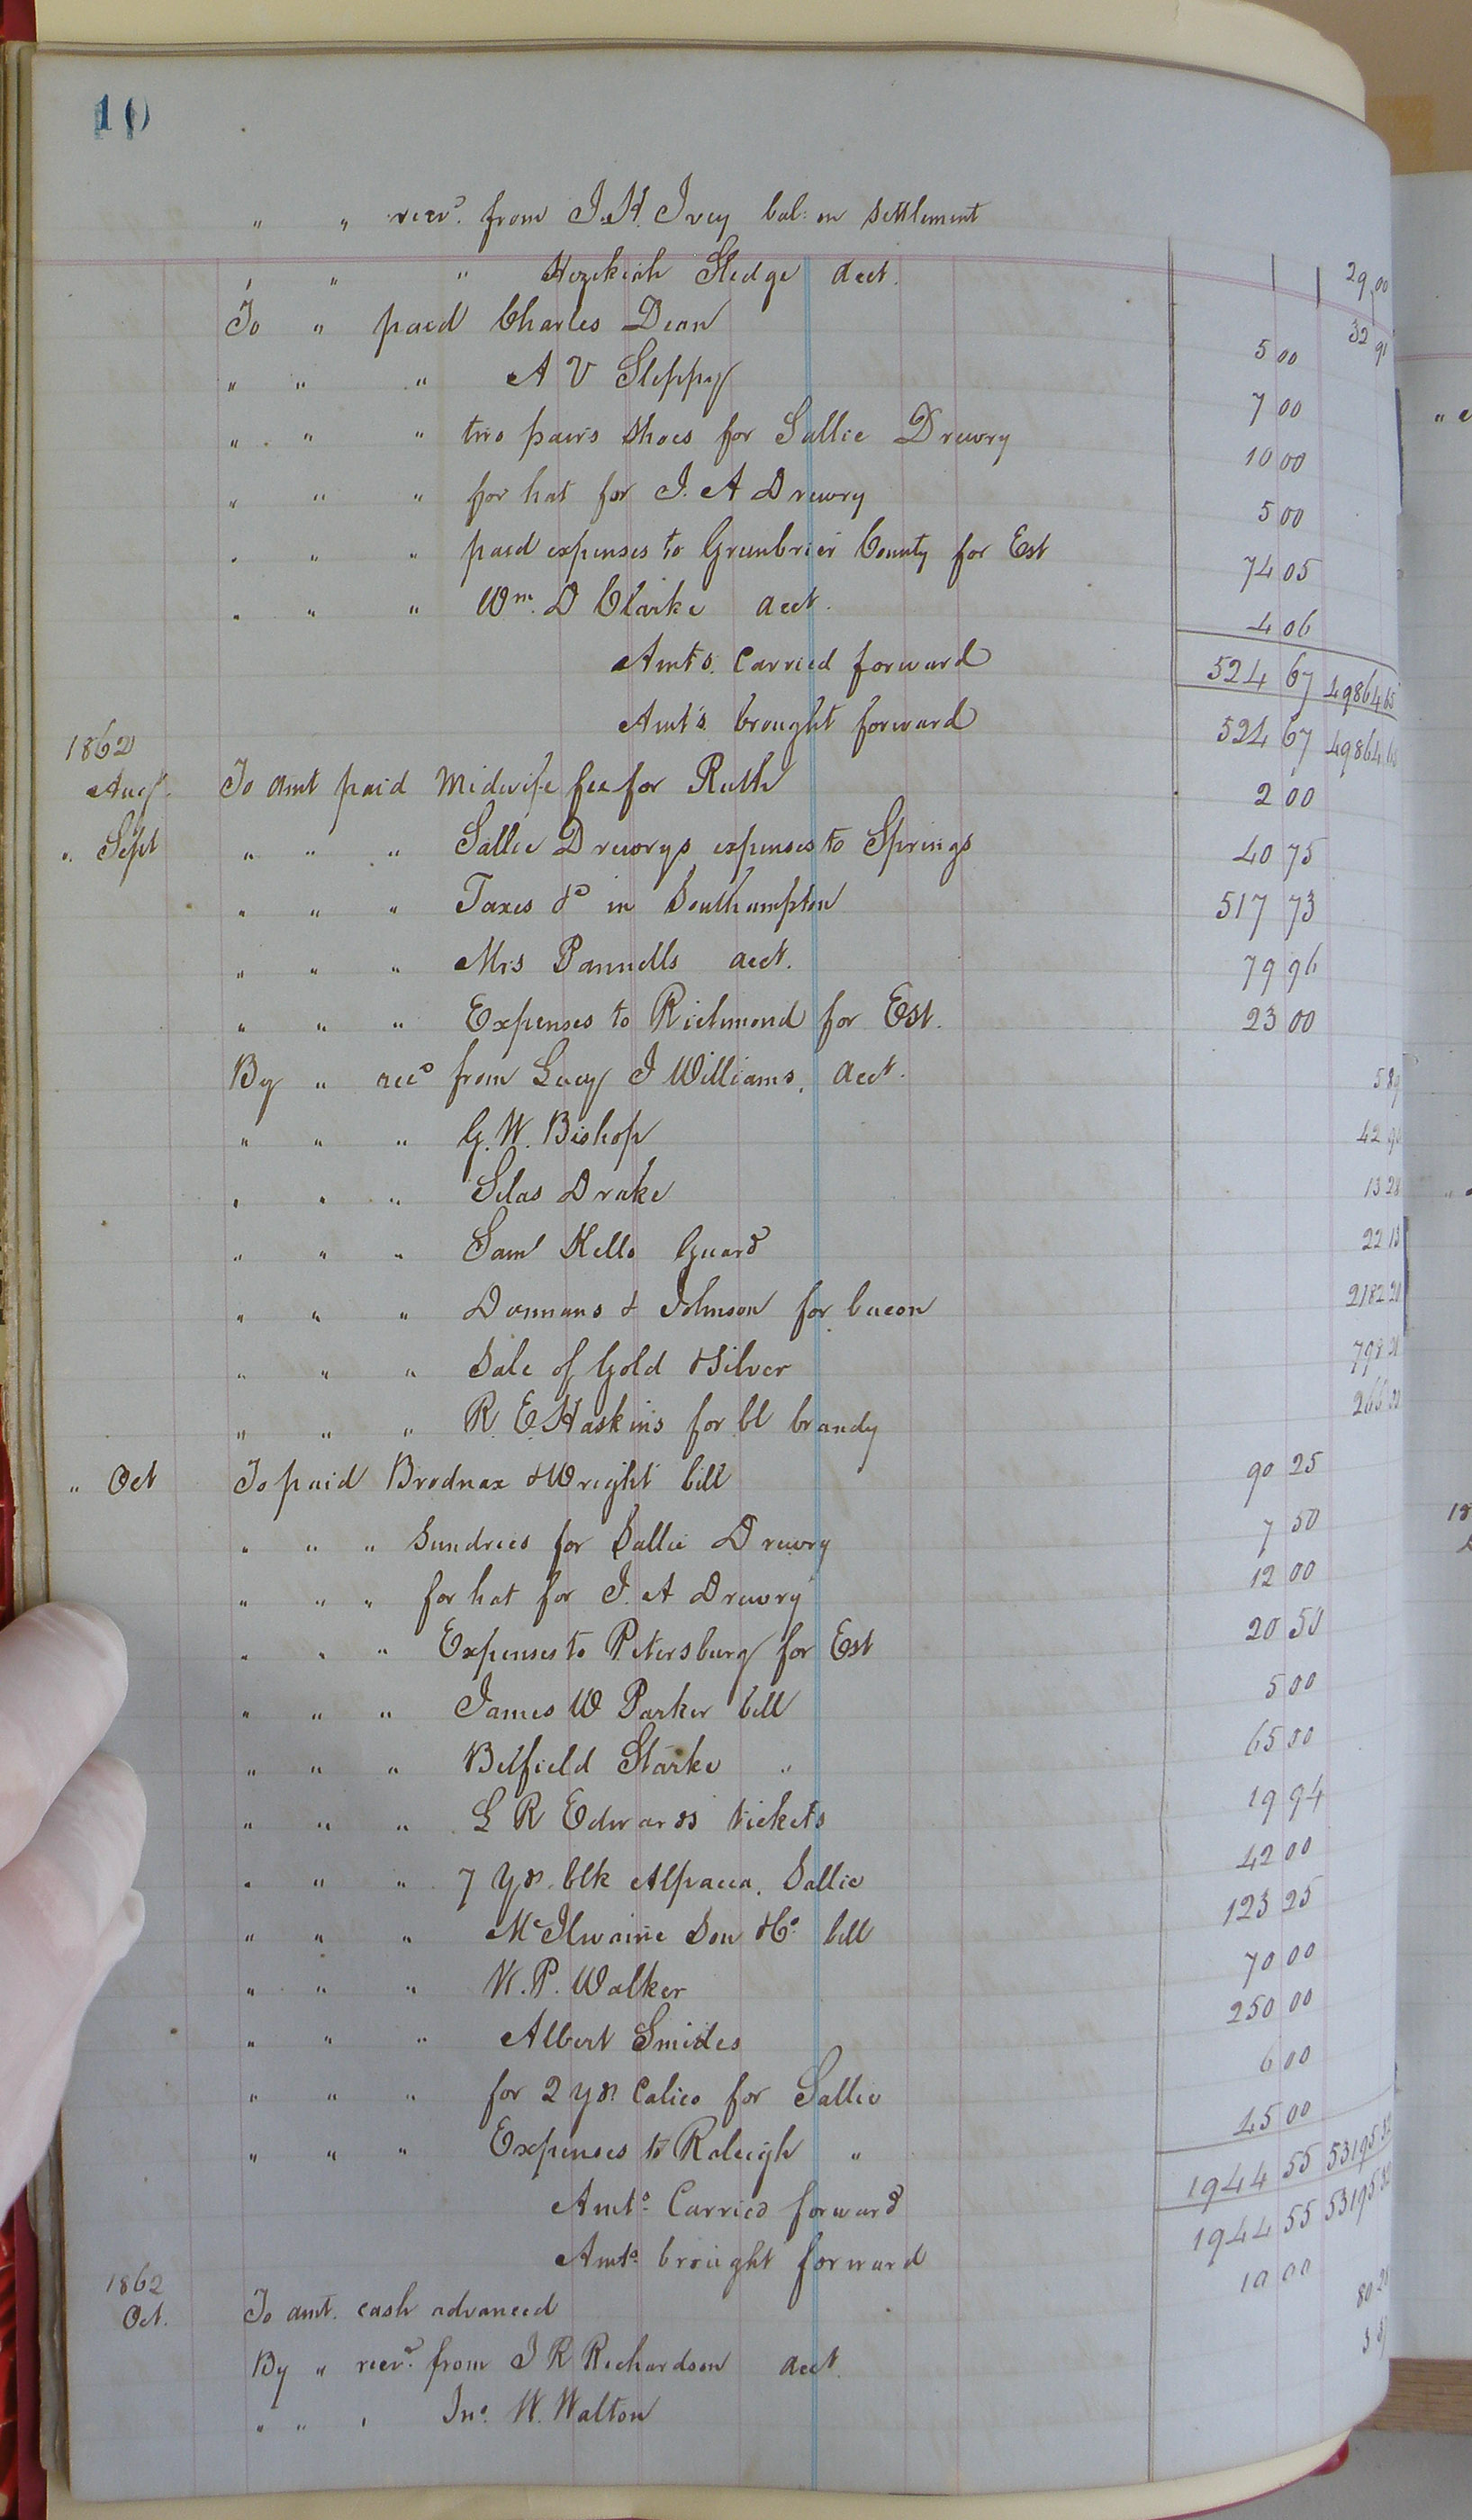 10
" " recd. from J. H. Ivey bal: on settlement 29 00
" " " Hezekiah Sledge acct. 32 91
To " paid Charles Dean 5 00
" " " A V Sleppy 7 00
" " " two pairs shoes for Sallie Drewry 10 00
" " " for hat for J. A Drewry 5 00
" " " paid expenses to Greenbrier County for Est 74 05
" " " Wm. D Clarke acct. 4 06
Amts. Carried forward 524 67 49864 65
Amt's. brought forward 524 67 49864
1862
Aug. To amt paid Midwife fee for Ruth 2 00
" Sept " " " Sallie Drewrys expenses to Springs 40 75
" " " Taxes &c in Southampton 517 73
" " " Mrs Pannells acct. 79 96
" " " Expenses to Richmond for Est. 23 00
By " recd from Lucy J Williams, acct. 5 89
" " " G. W. Bishop 42
" " " Silas Drake 13 28
" " " Saml Kello Guard 22 13
" " " Donnans & Johnson for bacon 2182 20
" " " Sale of Gold & Silver 798
" " " R. E. Haskins for bl brandy 266
" Oct To paid Brodnax & Wright bill 90 25
" " " Sundries for Sallie Drewry 7 50
" " " for hat for J. A Drewry 12 00
" " " Expenses to Petersburg for Est 20 50
" " " James W Parker bill 5 00
" " " Belfield Starke " 65 00
" " " L R Edwards tickets 19 94
" " " 7 yds. blk Alpacca. Sallie 42 00
" " " McIlwaine Son & Co. bill 123 25
" " " W. P. Walker 70 00
" " " Albert Smides 250 00
" " " for 2 yds. Calico for Sallie 6 00
" " " Expenses to Raleigh " 45 00
Amts. Carried forward 1944 55 53195 32
Amts. brought forward 1944 55 53195 32
1862
Oct. To amt. cash advanced 10 00
By " recvd. from J R Richardson acct. 80
" " " Jno. W. Walton